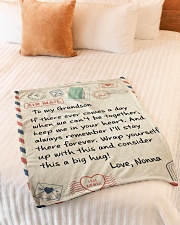 AIR MAIL
To my Grandson
If there ever comes a day
when we can't be together,
keep me in your heart. And
always remember I'll stay
there forever. Wrap yourself
up with this and consider
this a big hug!
Love, Nonna